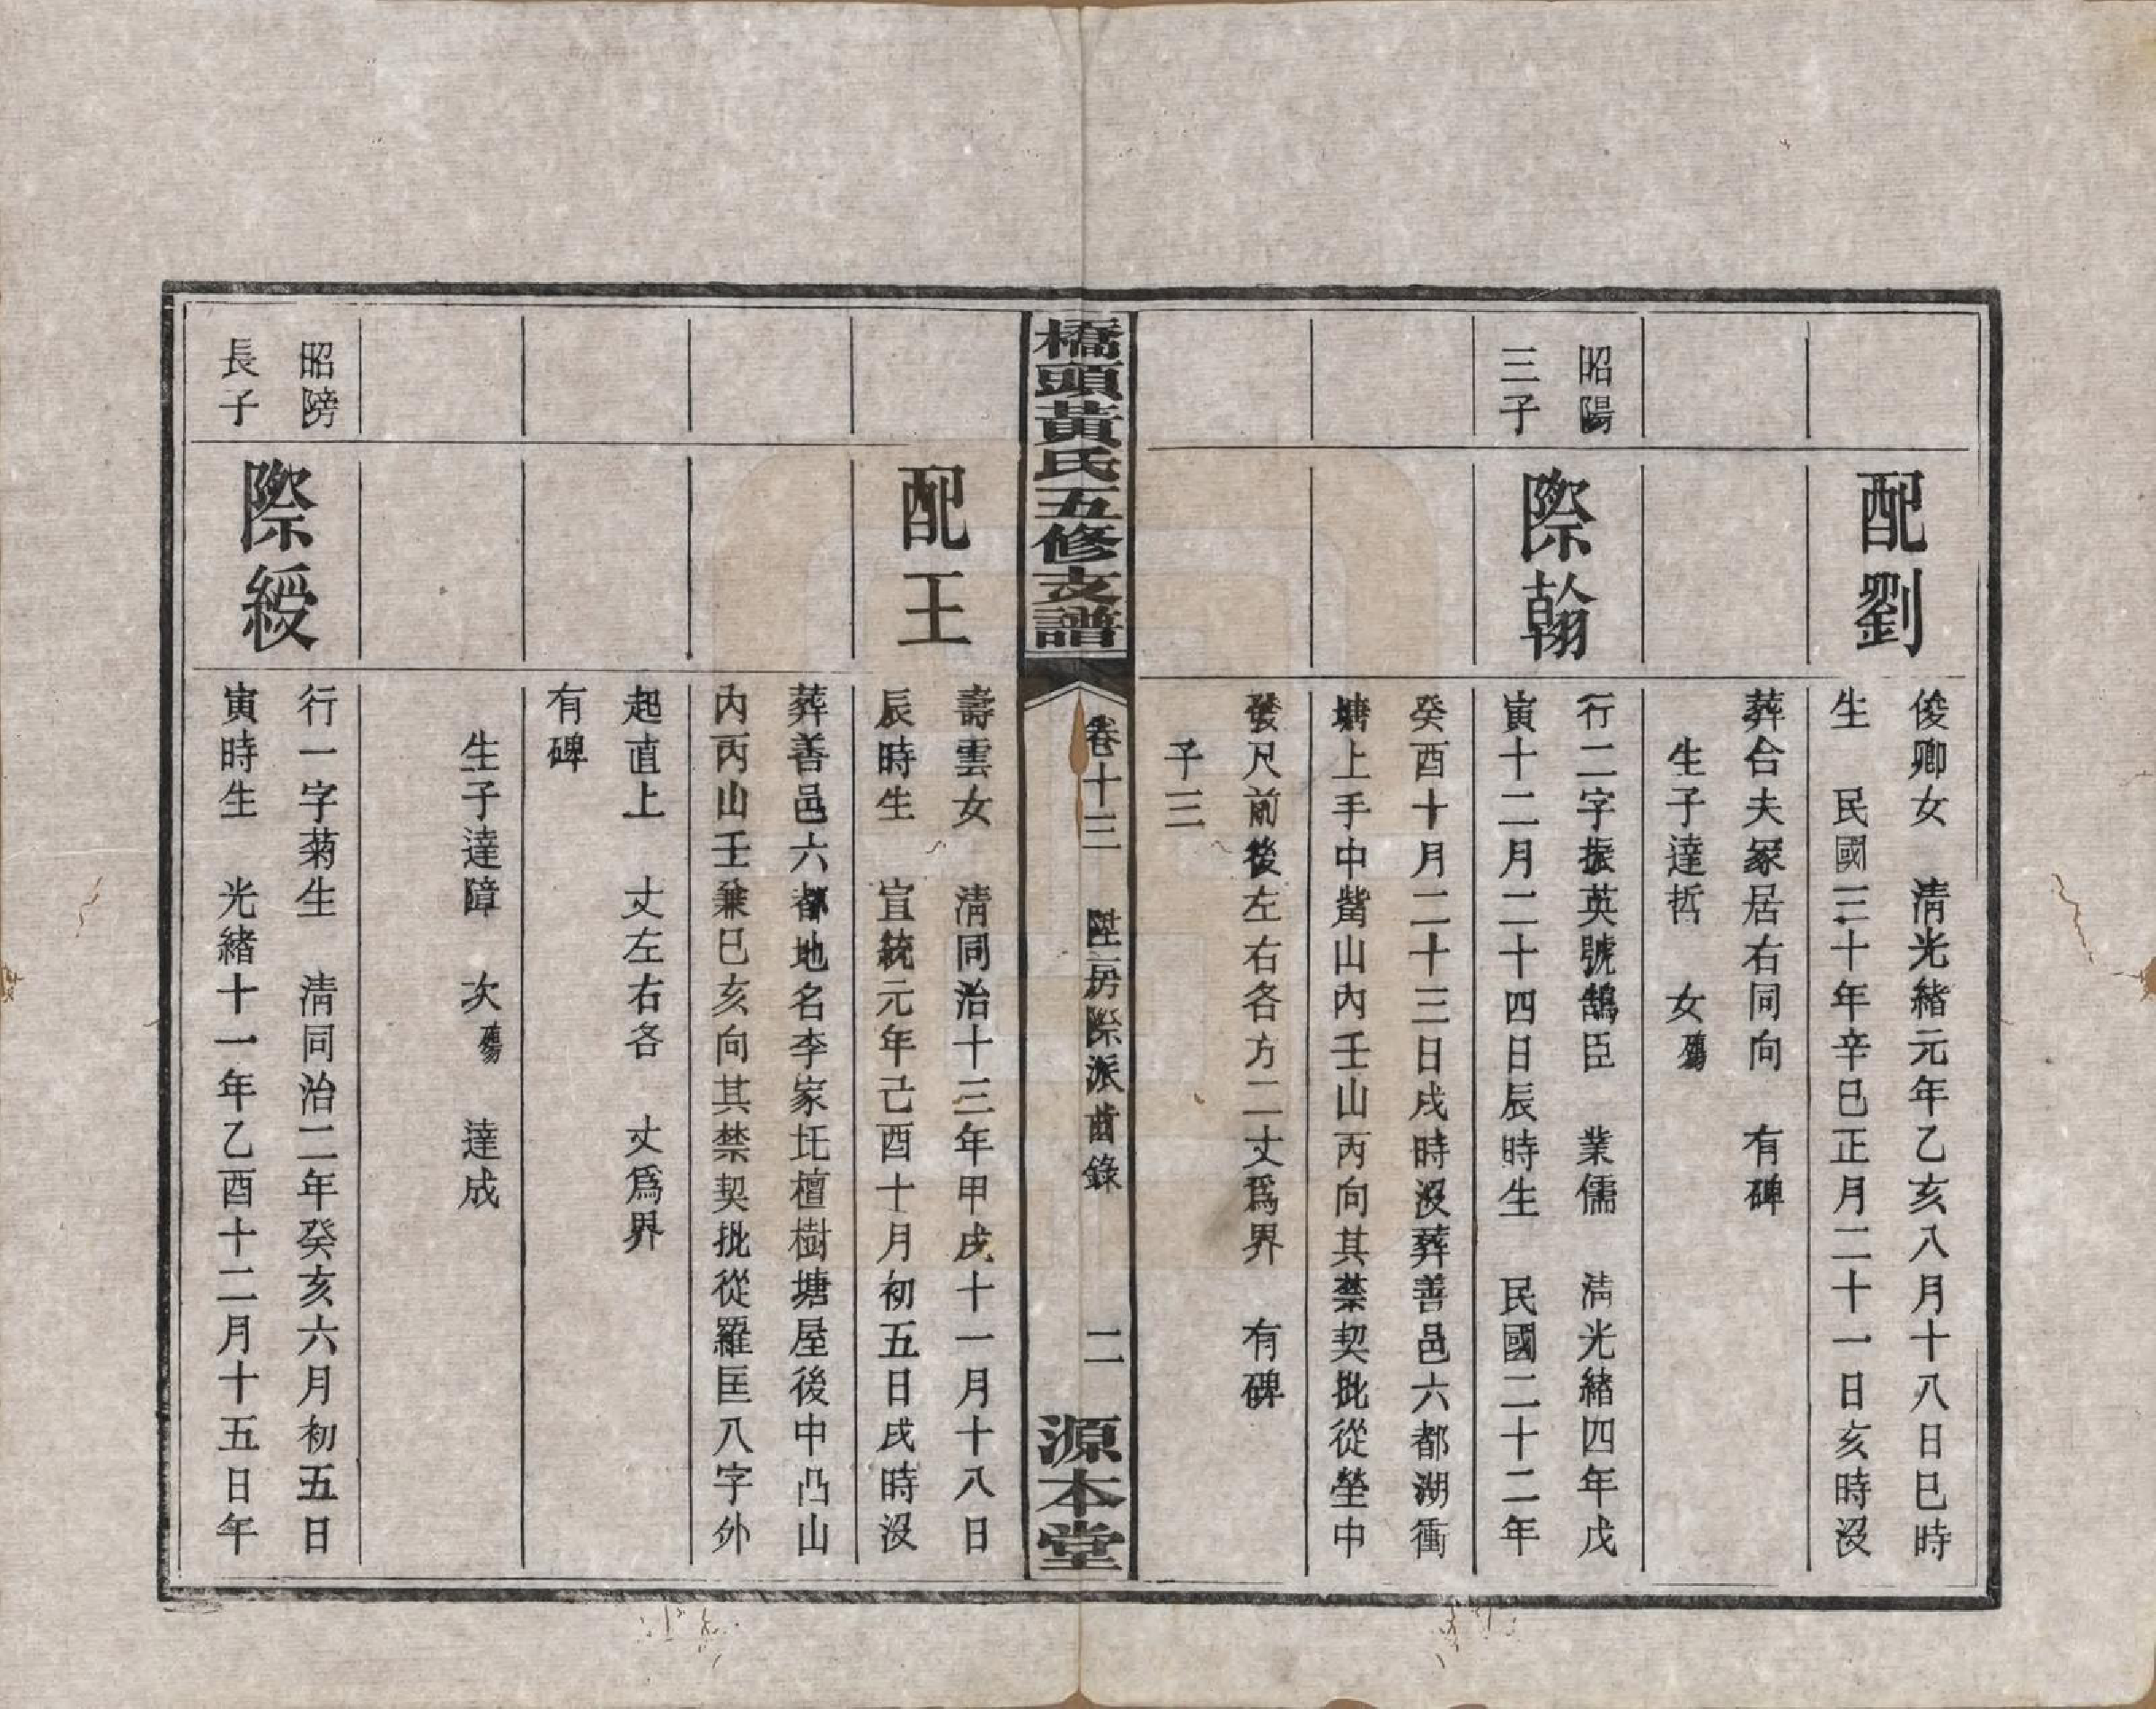 配劉
俊卿女　清光緒元年乙亥八月十八日巳時
生　民國三十年辛巳正月二十一日亥時沒
葬合夫冢居右同向　有碑
生子達哲　女殤
昭陽
三子
際翰
行二字振英號鵠臣　業儒　清光緒四年戊
寅十二月二十四日辰時生　民國二十二年
癸酉十月二十三日戌時沒葬善邑六都湖衝
塘上手中嘴山內壬山丙向其禁契批從塋中
發尺前後左右各方二丈爲界　有碑
子三
橋頭黃氏五修支譜
卷十三　陞房際派齒錄　二
源本堂
配王
壽雲女　清同治十三年甲戌十一月十八日
辰時生　宣統元年己酉十月初五日戌時沒
葬善邑六都地名李家圫檀樹塘屋後中凸山
內丙山壬兼巳亥向其禁契批從羅匡八字外
起直上　丈左右各　丈爲界
有碑
生子達障　次殤　達成
昭Geometry
長子
際綬
行一字菊生　清同治二年癸亥六月初五日
寅時生　光緒十一年乙酉十二月十五日午